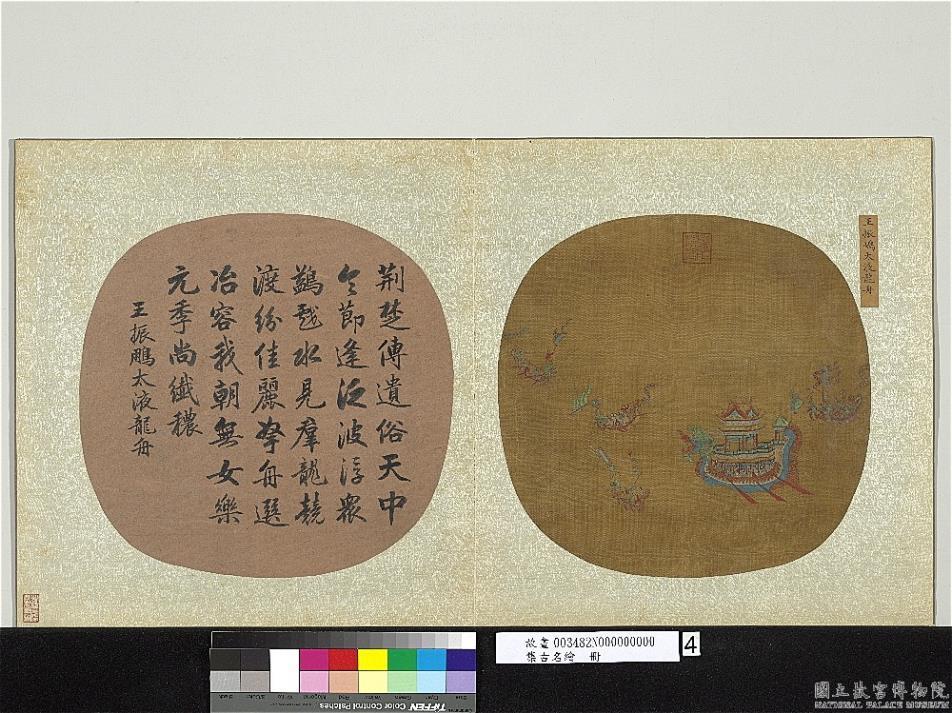 王振鵬太液龍舟
荆楚傳遺俗天中
令節逢泛波浮眾
鷁戲水見羣龍競
渡紛佳麗拏舟選
冶容我朝無女樂
元季尚纖穠
王振鵬太液龍舟
故畫003482N000000000
集古名繪 冊
4
TIFFEN Color Control Patches
國立故宮博物院
NATIONAL PALACE MUSEUM